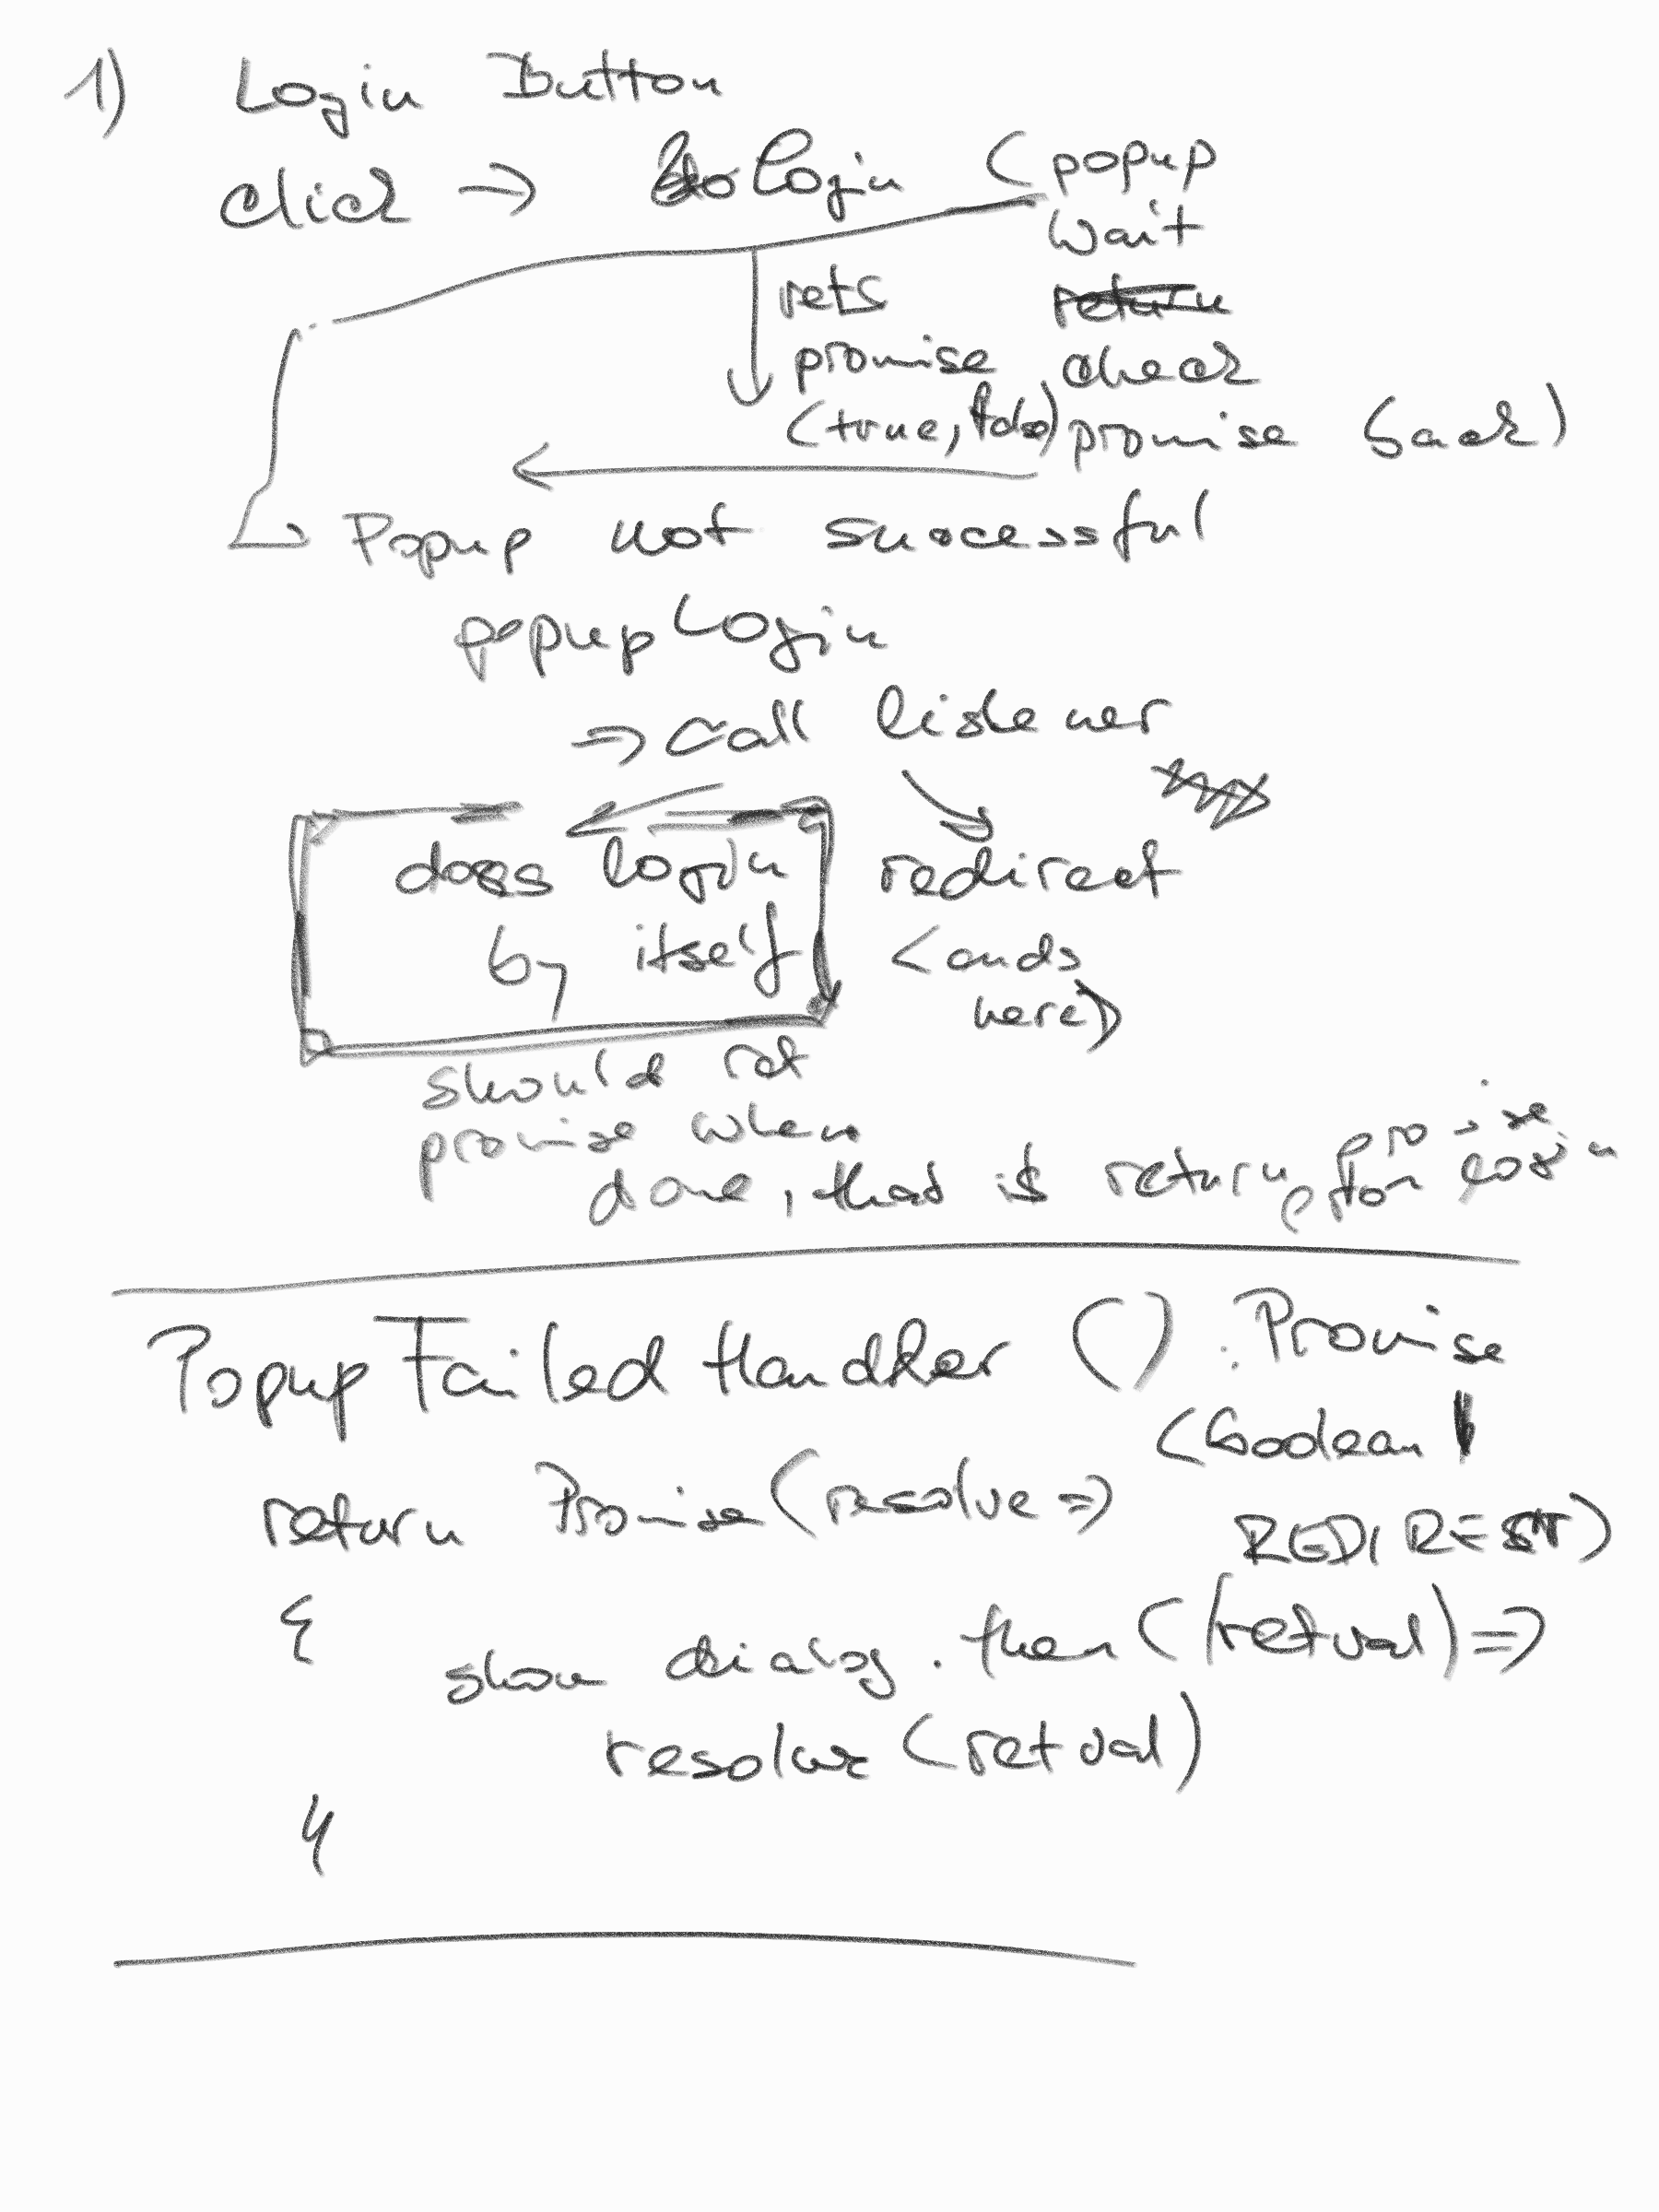 1) Login Button
click → doLogin (popup
wait
rets return
promise check
(true, false) promise back)
Popup not successful
popupLogin
⇒ call listener
does login redirect
by itself (ends
here)
should ret
promise when
done, that is return promise
for login
PopupFailedHandler () : Promise
(boolean |
return Promise (resolve ⇒
REDIREST)
{
show dialog . then ((retval) ⇒
resolve (retval)
}